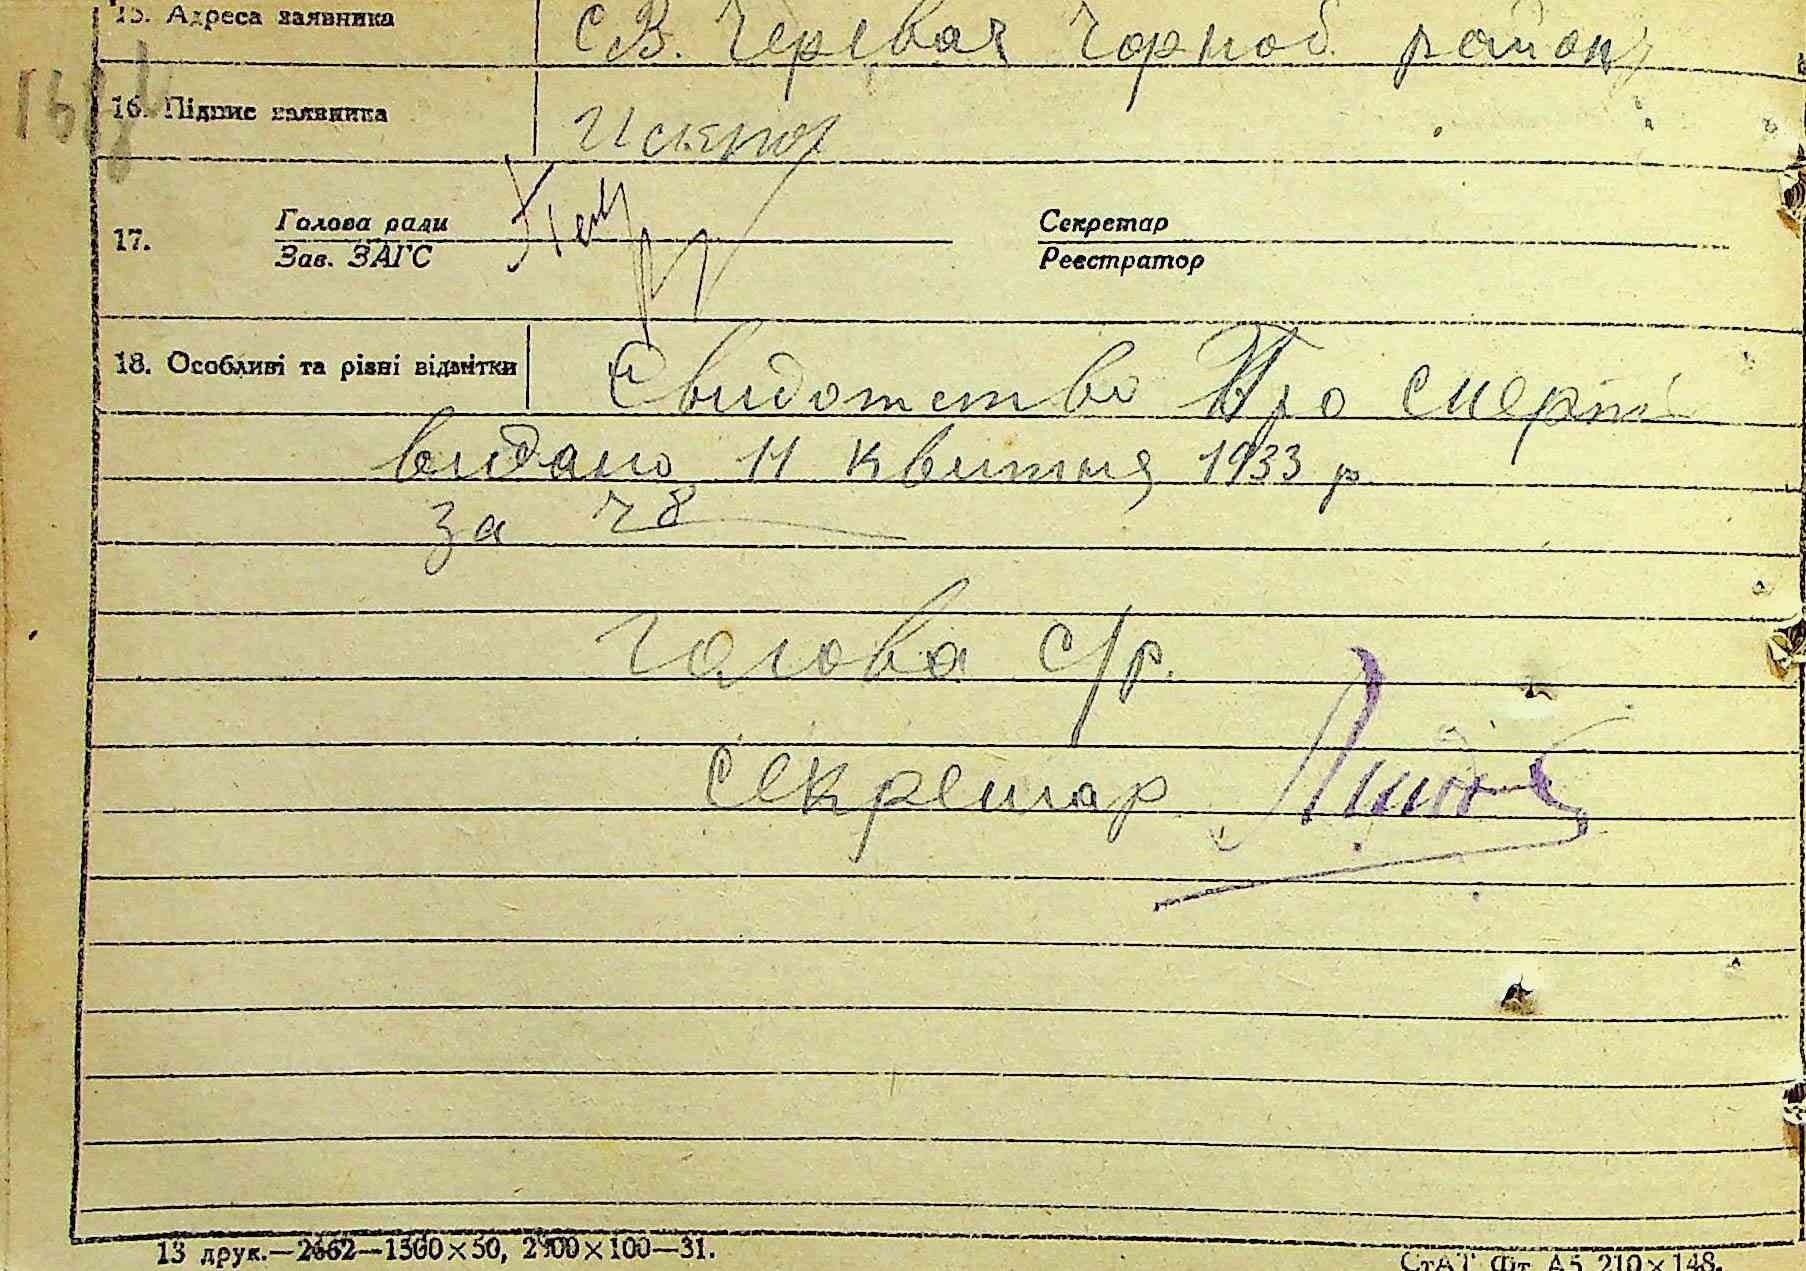 15. Адреса заявника с В. Черевач Чорноб. району
16. Підпис заявника
17. Голова ради Секретар
Зав. ЗАГС Реєстратор
18. Особливі та різні відмітки Свидотство Про смерть
видано 11 квитня 1933 р
за 48
Голова с/р.
Секретар
13 друк.—2662—1500×50, 2900×100—31.
СтАТ Фт А5 210×148.